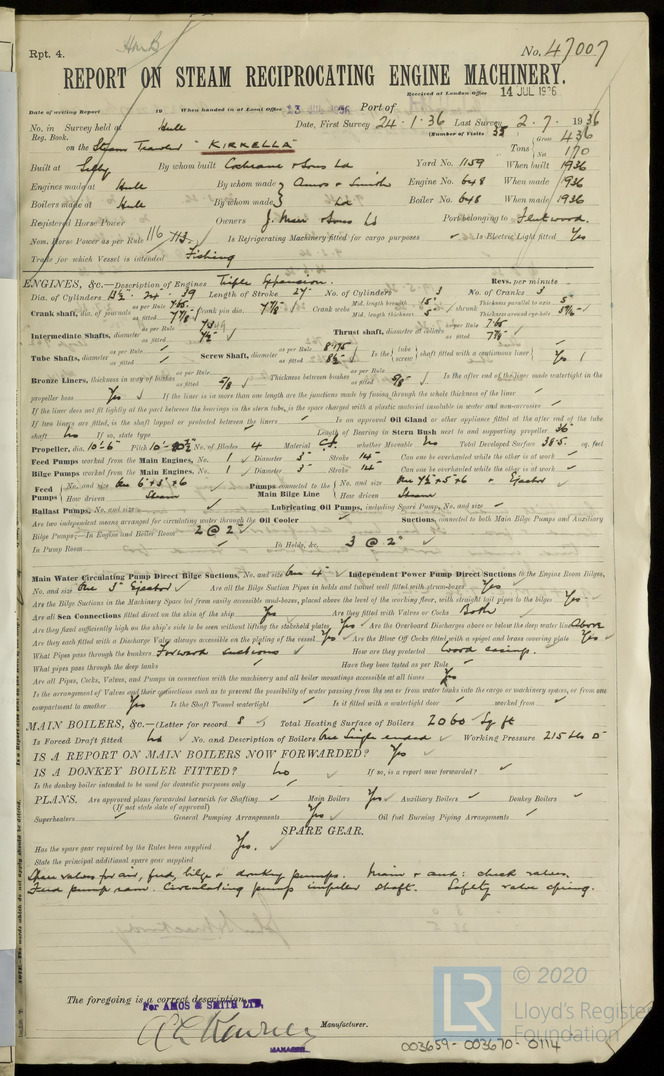 Rpt. 4.
No. 47007
REPORT ON STEAM RECIPROCATING ENGINE MACHINERY.
Received at London Office 14 JUL 1936
Date of writing Report 19 When handed in at Local Office 13 36 Port of
No. in Survey held at Hull Date, First Survey 24.1.36 Last Survey 2.7.1936
Reg. Book. (Number of Visits 38
on the Steam Trawler "KIRKELLA" Tons Gross 436 Net 170
Built at Selby By whom built Cochrane & Sons Ld Yard No. 1159 When built 1936
Engines made at Hull By whom made Amos & Smith Engine No. 648 When made 1936
Boilers made at Hull By whom made Ld Boiler No. 648 When made 1936
Registered Horse Power Owners J. Marr & Sons Ld Port belonging to Fleetwood.
Nom. Horse Power as per Rule 116 113. Is Refrigerating Machinery fitted for cargo purposes Is Electric Light fitted Yes
Trade for which Vessel is intended Fishing
ENGINES, &c.—Description of Engines Triple Expansion. Revs. per minute
Dia. of Cylinders 13½. 24. 39 Length of Stroke 27 No. of Cylinders 3 No. of Cranks 3
Crank shaft, dia. of journals as per Rule 7.65 as fitted 7⅞ Crank pin dia. 7⅞ Crank webs Mid. length breadth 15 Mid. length thickness 5 shrunk Thickness parallel to axis 5 Thickness around eye-hole
Intermediate Shafts, diameter as per Rule as fitted 7½ Thrust shaft, diameter at collars as per Rule 7.65 as fitted 7⅞
Tube Shafts, diameter as per Rule as fitted Screw Shaft, diameter as per Rule as fitted 8½ Is the tube screw shaft fitted with a continuous liner Yes
Bronze Liners, thickness in way of bushes as per Rule as fitted 5/8 Thickness between bushes as per Rule as fitted 5/8 Is the after end of the liner made watertight in the
propeller boss Yes If the liner is in more than one length are the junctions made by fusion through the whole thickness of the liner
If the liner does not fit tightly at the part between the bearings in the stern tube, is the space charged with a plastic material insoluble in water and non-corrosive
If two liners are fitted, is the shaft lapped or protected between the liners Is an approved Oil Gland or other appliance fitted at the after end of the tube
shaft No If so, state type Length of Bearing in Stern Bush next to and supporting propeller 36
Propeller, dia. 10'-6 Pitch No. of Blades 4 Material C.I. whether Moveable No Total Developed Surface 38.5. sq. feet
Feed Pumps worked from the Main Engines, No. 1 Diameter 3" Stroke 14" Can one be overhauled while the other is at work
Bilge Pumps worked from the Main Engines, No. 1 Diameter 3" Stroke 14" Can one be overhauled while the other is at work
Feed Pumps No. and size One 6" × 3" × 6 How driven Steam Pumps connected to the Main Bilge Line No. and size One 7½ × 5 × 6 + Ejector How driven Steam
Ballast Pumps, No. and size Lubricating Oil Pumps, including Spare Pump, No. and size
Are two independent means arranged for circulating water through the Oil Cooler Suctions, connected to both Main Bilge Pumps and Auxiliary
Bilge Pumps;—In Engine and Boiler Room 2 @ 2"
In Pump Room In Holds, &c. 3 @ 2"
Main Water Circulating Pump Direct Bilge Suctions, No. and size One 4" Independent Power Pump Direct Suctions to the Engine Room Bilges,
No. and size One 3" Ejector Are all the Bilge Suction Pipes in holds and tunnel well fitted with strum-boxes Yes
Are the Bilge Suctions in the Machinery Space led from easily accessible mud-boxes, placed above the level of the working floor, with straight tail pipes to the bilges Yes
Are all Sea Connections fitted direct on the skin of the ship Yes Are they fitted with Valves or Cocks Both
Are they fixed sufficiently high on the ship's side to be seen without lifting the stokehold plates Yes Are the Overboard Discharges above or below the deep water line Above
Are they each fitted with a Discharge Valve always accessible on the plating of the vessel Yes Are the Blow Off Cocks fitted with a spigot and brass covering plate Yes
What Pipes pass through the bunkers Forward suctions How are they protected Wood casings.
What pipes pass through the deep tanks Have they been tested as per Rule
Are all Pipes, Cocks, Valves, and Pumps in connection with the machinery and all boiler mountings accessible at all times Yes
Is the arrangement of Valves and their connections such as to prevent the possibility of water passing from the sea or from water tanks into the cargo or machinery spaces, or from one
compartment to another Yes Is the Shaft Tunnel watertight Is it fitted with a watertight door worked from
MAIN BOILERS, &c.—(Letter for record S Total Heating Surface of Boilers 2060 Sq ft
Is Forced Draft fitted No No. and Description of Boilers One Single ended Working Pressure 215 Lbs
IS A REPORT ON MAIN BOILERS NOW FORWARDED? Yes
IS A DONKEY BOILER FITTED? No If so, is a report now forwarded?
Is the donkey boiler intended to be used for domestic purposes only
PLANS. Are approved plans forwarded herewith for Shafting Main Boilers Yes Auxiliary Boilers Donkey Boilers
(If not state date of approval)
Superheaters General Pumping Arrangements Yes Oil fuel Burning Piping Arrangements
SPARE GEAR.
Has the spare gear required by the Rules been supplied Yes.
State the principal additional spare gear supplied
Spare valves for air, feed, bilge & donkey pumps. Main & aux: check valves.
Feed pump ram. Circulating pump impeller shaft. Safety valve spring.
The foregoing is a correct description,
For AMOS & SMITH LTD.
Manufacturer.
MANAGER.
003659-003670-0114
LR © 2020
Lloyd's Register
Foundation